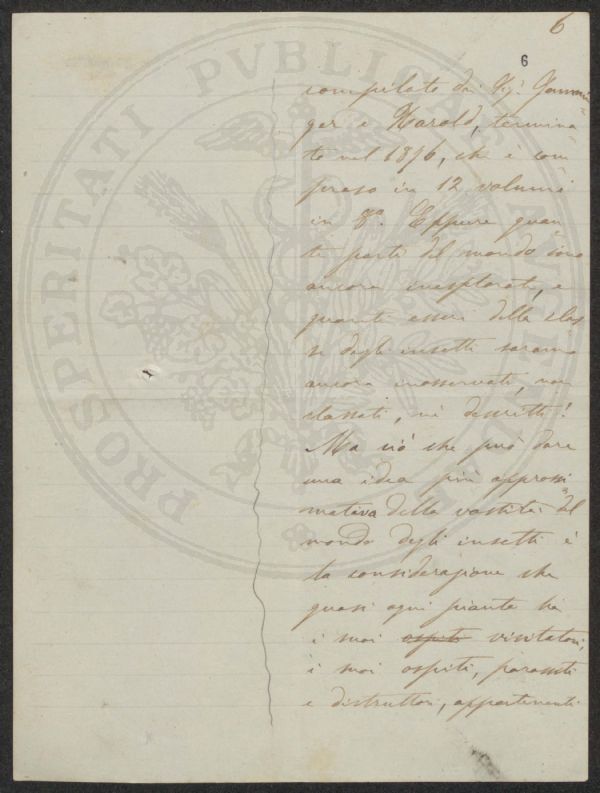 6
6
compilato dai Sig.i Gemmin-
ger e Harold, termina-
to nel 1876, ch'è com
preso in 12 volumi
in 8.o Eppure quan
te parti del mondo sono
ancora inesplorate, e
quanti esseri della clas
se degli insetti saranno
ancora inosservati, non
classati, nè descritti!
Ma ciò che può dare
una idea più approssi-
mativa della vastità del
mondo degli insetti è
la considerazione che
quasi ogni pianta ha
i suoi ospiti visitatori,
i suoi ospiti, parassiti
e distruttori, appartenenti
PROSPERITATI PVBLICAE AVGENDAE